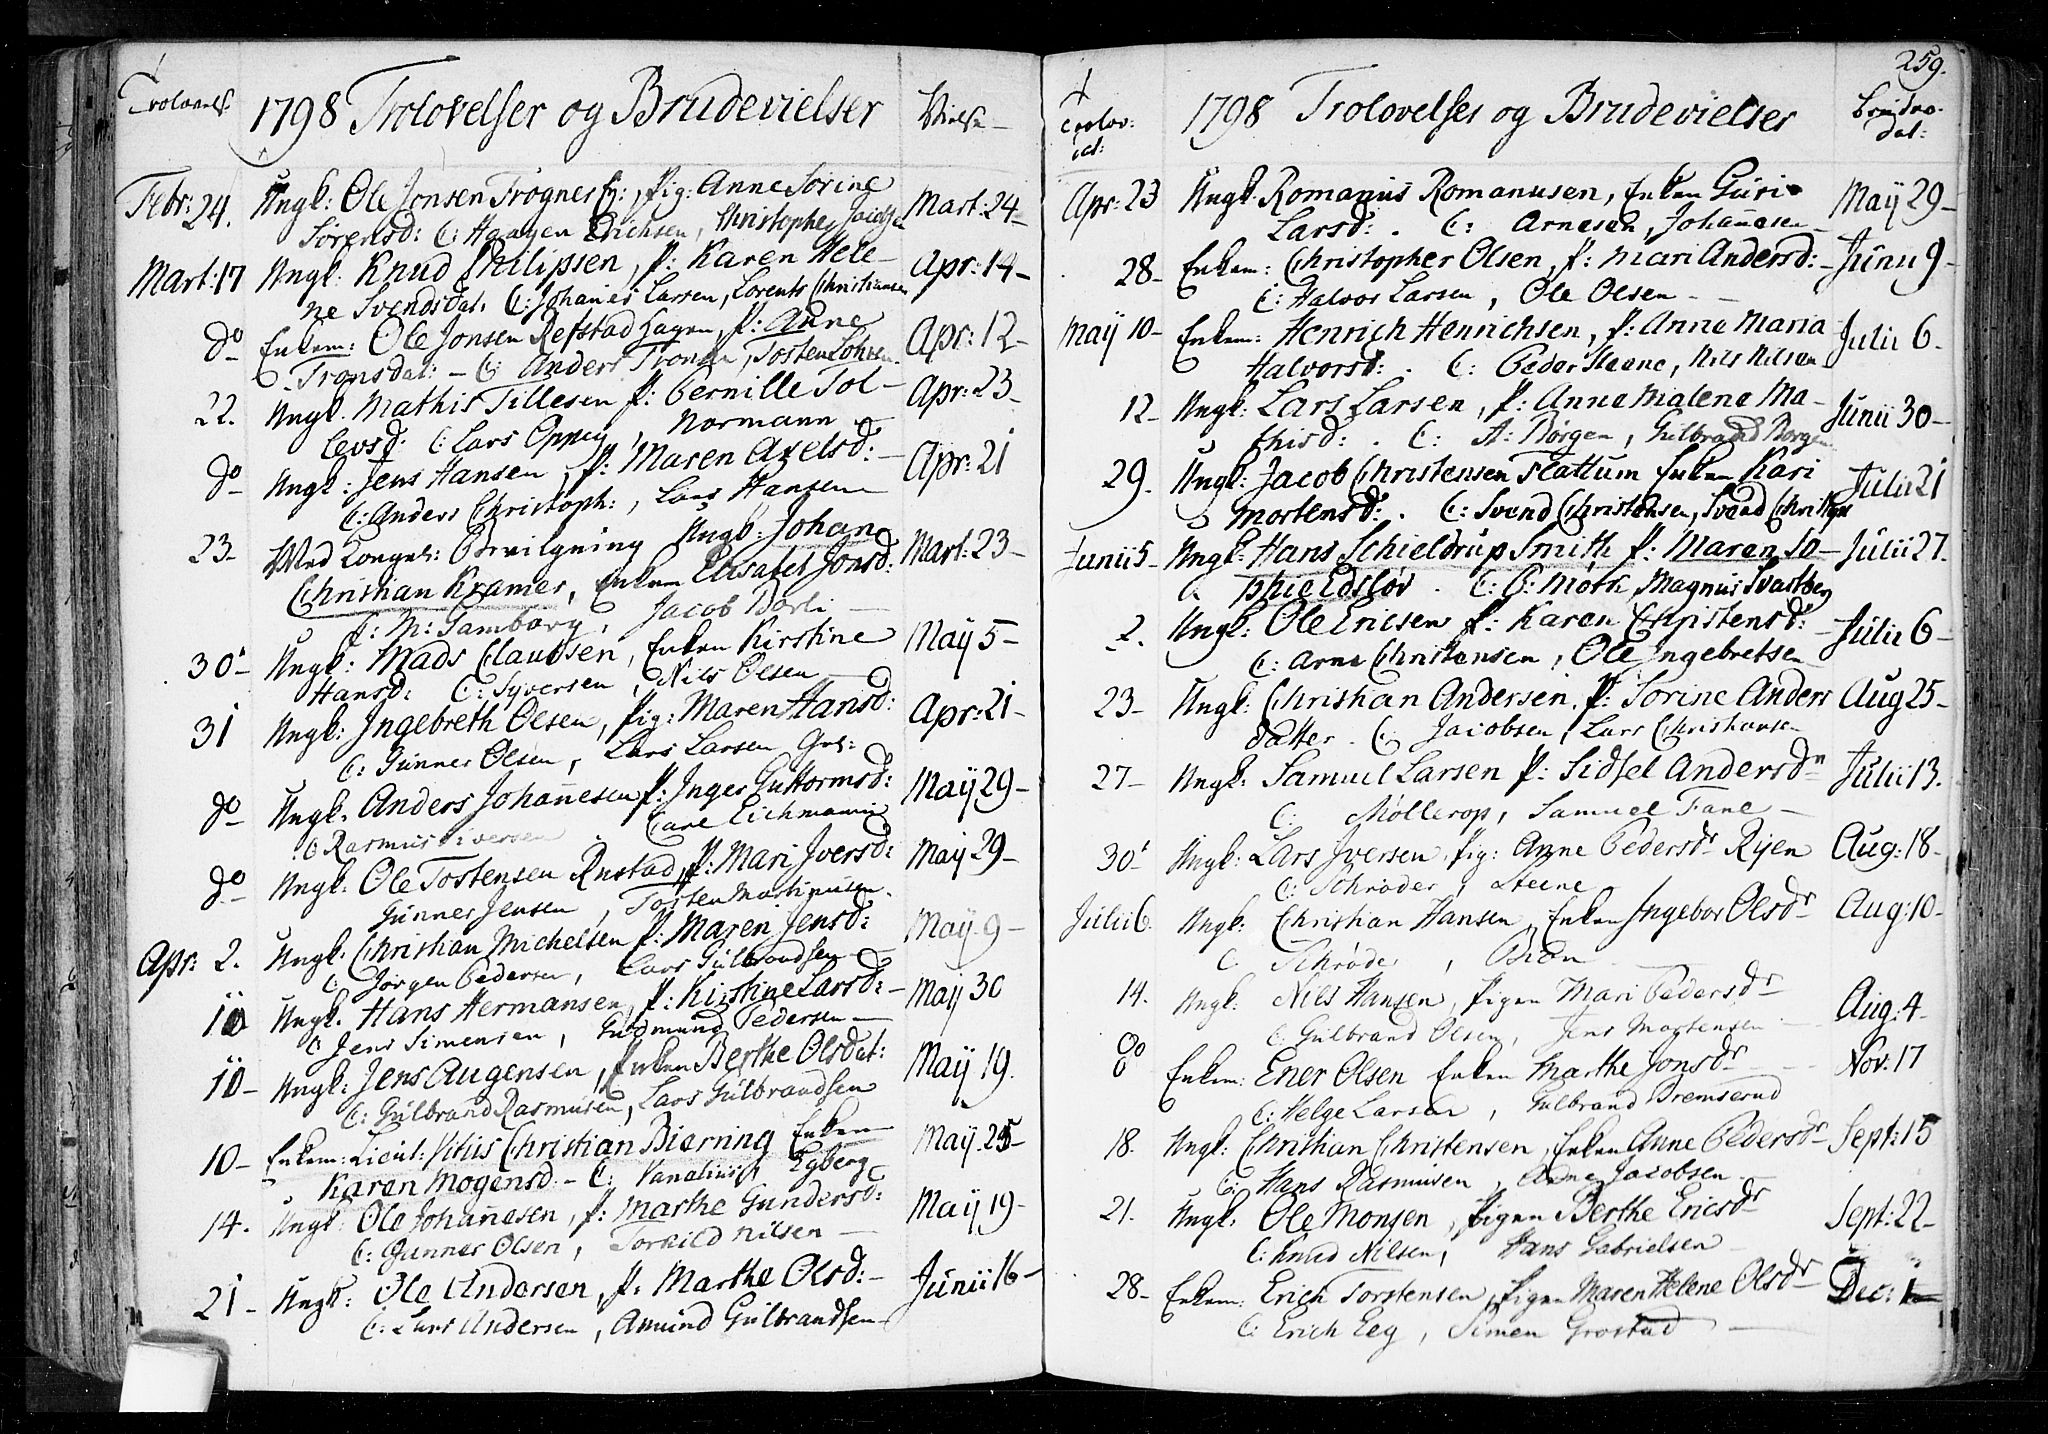 1798 Trolovelser og Brudevielser Vielse
Febr: 24. Ungk: Ole Jonsen Trogner Eg:, Pig: Anne Sorine Mart: 24
Sörensd: C: Haagen Erichsen, Christopher
Mart: 17 Ungk: Knud Philipsen, P: Karen Hele- Apr: 14
ne Svendsdat: C: Johanes Larsen, Lorents Christiansen
do Enkem: Ole Jonsen Refstad hagen, P: Anne Apr: 12
Tronsdat: - C: Anders Tronsen, Tosten
22. Ungk. Mathis Tillesen P: Pernille Tol- Apr: 23
levsd. C: Lars Oppen, Normann
do Ungk: Jens Hansen, P: Maren Axelsd: Apr: 21
C: Anders Christoph:, Lars Hansen
23 Med Kongel: Bevilgning Ungk: Johan Mart: 23
Christian Kramer, Enken Elisabet Jonsd:
C: M: Tamborg, Jacob Dorli
30 Ungk: Mads Claussen, Enken Kirstine May 5
Hansd: C: Syversen, Nils Olsen
31 Ungk: Ingebreth Olsen, Pig: Maren Hansd: Apr: 21
C: Gunner Olsen, Lars Larsen
do Ungk. Anders Johannesen P: Inger Guttormsd: May 29
C Rasmus Siversen Carl Eichmann
do Ungk: Ole Tostensen Rustad, P: Mari Iversd: May 29
Gunner Jensen, Tosten Martinusen
Apr: 2. Ungk. Christian Michelsen P: Maren Jensd: May 9
C: Jørgen Pedersen, Lars Gulbrandsen
10 Ungk. Hans Hermansen, P: Kirstine Larsd: May 30
C: Jens Simensen, Gudmund Pedersen
10 Ungk: Jens Augensen, Enken Berthe Olsdat: May 19.
C: Gulbrand Rasmusen, Lars Gulbrandsen
10 Enkem: Lieut: Vitus Christian Bierning Enken May. 25
Karen Mogensd. - C: Egberg
14. Ungk: Ole Johannesen, P: Marthe Gundersd: May 19
C: Gunner Olsen, Torkild Nilsen
21 Ungk: Ole Andersen, P. Marthe Olsd: Junii 16
C: Lars Andersen, Amund Gulbrandsen
259.
Trolov: 1798 Trolovelser og Brudevielser
dat:
Apr: 23 Ungk Romanus Romanusen, Enken Guri May 29
Larsd: . C: Arnesen, Johannesen
28 Enkem: Christopher Olsen, P: Mari Andersd: Junii 9
C: Halvor Larsen, Ole Olsen
May 10 Enkem: Henrich Henrichsen, P: Anne Maria Julii 6
Halvorsd: . C: Peder Steene, Nils Nilsen
12 Ungk: Lars Larsen, P: Anne Malene Ma- Junii 30
thisd: . C: A: Børgen, Gulbrand Borgen
29. Ungk: Jacob Christensen Flattum Enken Kari Julii 21
Mortensd: . C: Svend Christensen, Svend
Junii 5 Ungk: Hans Schieldrup Smith P: Maren So- Julii 27.
phie Edsløv . C: P: Mørk, Magnus Svartberg
2. Ungk: Ole Ericsen P: Karen Christensd: Julii 6
C: Arne Christensen, Ole Ingebretsen
23 Ungk: Christian Andersen, P: Sorine Anders Aug 25
datter. C: Jacobsen, Lars Christiansen
27 Ungk: Samuel Larsen P: Sidsel Andersdr Julii 13.
C: Møllerop, Samuel Fane
30 Ungk: Lars Iversen, Pig: Anne Pedersdr Ryen Aug: 18
C: Schrøder, Steene
Julii 6. Ungk: Christian Hansen, Enken Ingebor Olsdr Aug: 10
C Schrøder,
14. Ungk: Nils Hansen, Pigen Mari Pedersdr Aug: 4
C: Gulbrand Olsen, Jens Mortensen
do Enkem: Ener Olsen Enken Marthe Jonsdr Nov. 17
C: Helge Larsen, Gulbrand Bremserud
18. Ungk: Christian Christensen, Enken Anne Pedersdr Sept: 15
C: Hans Rasmusen, Arne Jacobsen
21. Ungk. Ole Monsen, Pigen Berthe Ericsdr Sept: 22
C: Knud Nilsen, Hans Gabrielsen
28 Enkem: Erich Torstensen, Pigen Maren Helene Olsdr Dec: 1
C: Erich Eeg, Simen Grostad